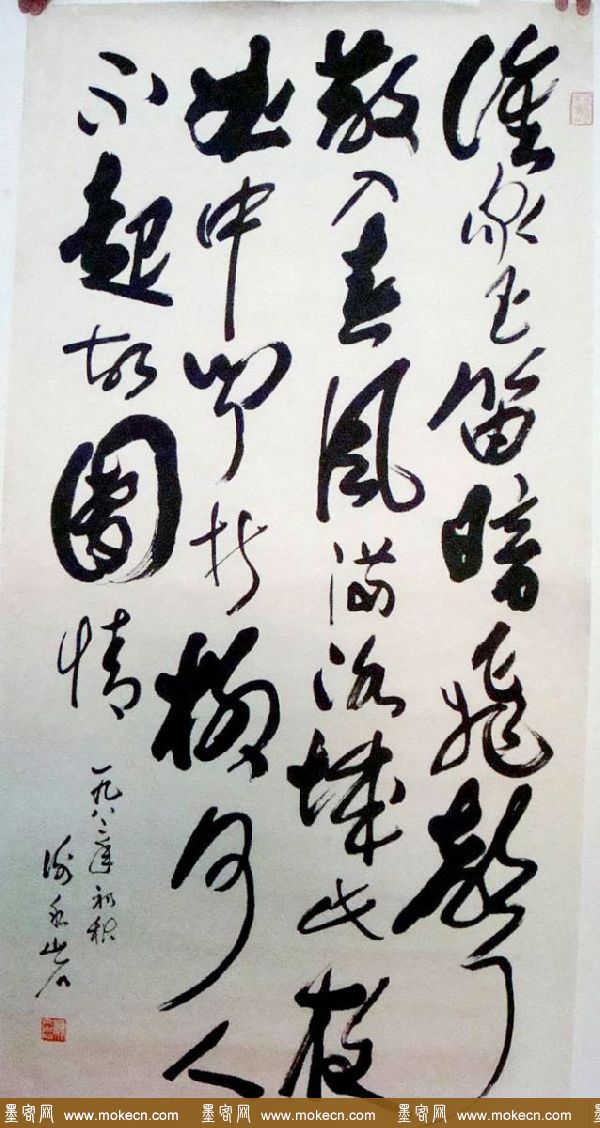 誰家玉笛暗飛聲
散入春風満洛城此夜
曲中聞折柳何人
不起故園情
一九八二年初秋
墨客网 www.mokecn.com 墨客网 www.mokecn.com 墨客网 www.mokecn.com